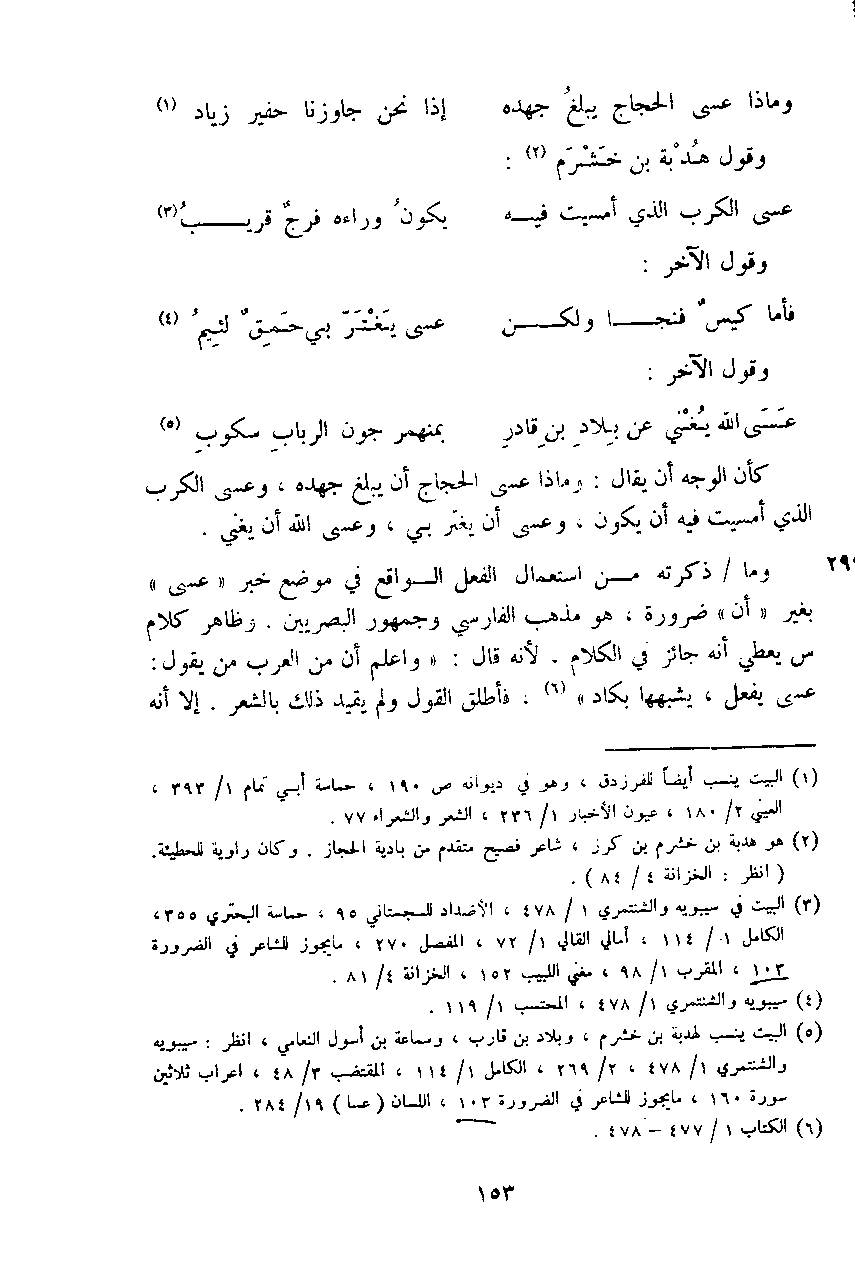 وماذا عسى الحجاج يبلغُ جهده إذا نحن جاوزنا حفير زياد (١)
وقول هُدْبة بن خَشْرَم (٢) :
عسى الكرب الذي أمسيت فيـــه يكونُ وراءه فرجٌ قريـــــبُ(٣)
وقول الآخر :
فأما كيسٌ فنجـــــا ولكـــــن عسى يَغْتَرَّ بي حَمِقٌ لئيمُ (٤)
وقول الآخر :
عَسَى الله يُغْني عن بِلادِ بنِ قادرِ بمنهمر جون الربابِ سكوبِ (٥)
كأن الوجه أن يقال : وماذا عسى الحجاج أن يبلغ جهده ، وعسى الكرب
الذي أمسيت فيه أن يكون ، وعسى أن يغتر بي ، وعسى الله أن يغني .
وما / ذكرته مـــن استعمال الفعل الـــواقع في موضع خبر « عسى »
بغير « أن » ضرورة ، هو مذهب الفارسي وجمهور البصريين . وظاهر كلام
س يعطي أنه جائز في الكلام . لأنه قال : « واعلم أن من العرب من يقول :
عسى يفعل ، يشبهها بكاد » (٦) . فأطلق القول ولم يقيد ذلك بالشعر . إلا أنه
(١) البيت ينسب أيضاً للفرزدق ، وهو في ديوانه ص ١٩٠ ، حماسة أبي تمام ١/ ٣٩٣ ،
العيني ٢/ ١٨٠ ، عيون الأخبار ١/ ٢٣٦ ، الشعر والشعراء ٧٧ .
(٢) هو هدبة بن خشرم بن كرز ، شاعر فصيح متقدم من بادية الحجاز . وكان راوية للحطيئة.
( انظر : الخزانة ٤ / ٨٤ ) .
(٣) البيت في سيبويه والشنتمري ١ / ٤٧٨ ، الأضداد للسجستاني ٩٥ ، حماسة البحتري ٣٥٥،
الكامل ١/ ١١٤ ، أمالي القالي ١/ ٧٢ ، المفصل ٢٧٠ ، مايجوز للشاعر في الضرورة
١٠٣ ، المقرب ١/ ٩٨ ، مغني اللبيب ١٥٢ ، الخزانة ٤/ ٨١ .
(٤) سيبويه والشنتمري ١/ ٤٧٨ ، المحتسب ١/ ١١٩ .
(٥) البيت ينسب لهدبة بن خشرم ، وبلاد بن قارب ، وسماعة بن أسول النعامي ، انظر : سيبويه
والشنتمري ١/ ٤٧٨ ، ٢/ ٢٦٩ ، الكامل ١/ ١١٤ ، المقتضب ٣/ ٤٨ ، اعراب ثلاثين
سورة ١٦٠ ، مايجوز للشاعر في الضرورة ١٠٣ ، اللسان ( عسا ) ١٩/ ٢٨٤ .
(٦) الكتاب ١ / ٤٧٧ – ٤٧٨ .
١٥٣